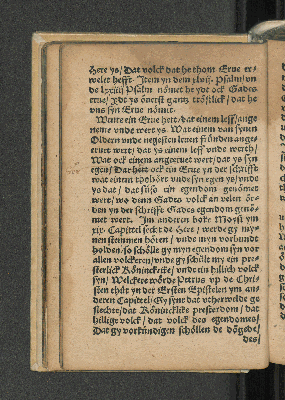 Here ys/ Dat volck dat he thom Erue er-
welet hefft. Item yn dem xlvij. Psalm/ vn
de lxxiiij Psalm nömet he ydt ock Gades
erue/ ydt ys öuerst gantz tröstlick/ dat he
vns syn Erue nömet.
Wente ein Erue hett/ dat einem leff/ ange
neme vnde wert ys. Wat einem van synen
Oldern vnde negesten leuen fründen ange-
eruet wert/ dat ys einem leff vnde werth/
Wat ock einem angeeruet wert/ dat ys syn
egen/ Dat hett ock ein Erue yn der schrifft
wat einem thohört vnde syn egen ys/ vnde
ys dat/ dat süso ein egendom genömet
wert/ wo denn Gades volck an velen ör-
den yn der schrifft Gades egendom genö-
met wert. Im anderen boke Moysi ym
xix. Capittel secht de Here/ werde gy my-
nen stemmen hören/ vnde myn vorbundt
holden/ so schöle gy myn egendom syn vor
allen volckeren/ vnde gy schölle my ein pre-
sterlick Köninckrike/ vnde ein hillich volck
syn/ Welckere wörde Petrus vp de Chri-
sten thüt yn der Ersten Epistelen ym an-
deren Capittel/ Gy synt dat vtherwelde ge
slechte/ dat Köninckrike presterdom/ dat
hillige volck/ dat volck des egendomes/
Dat gy vorkündigen schöllen de dögede/
des/